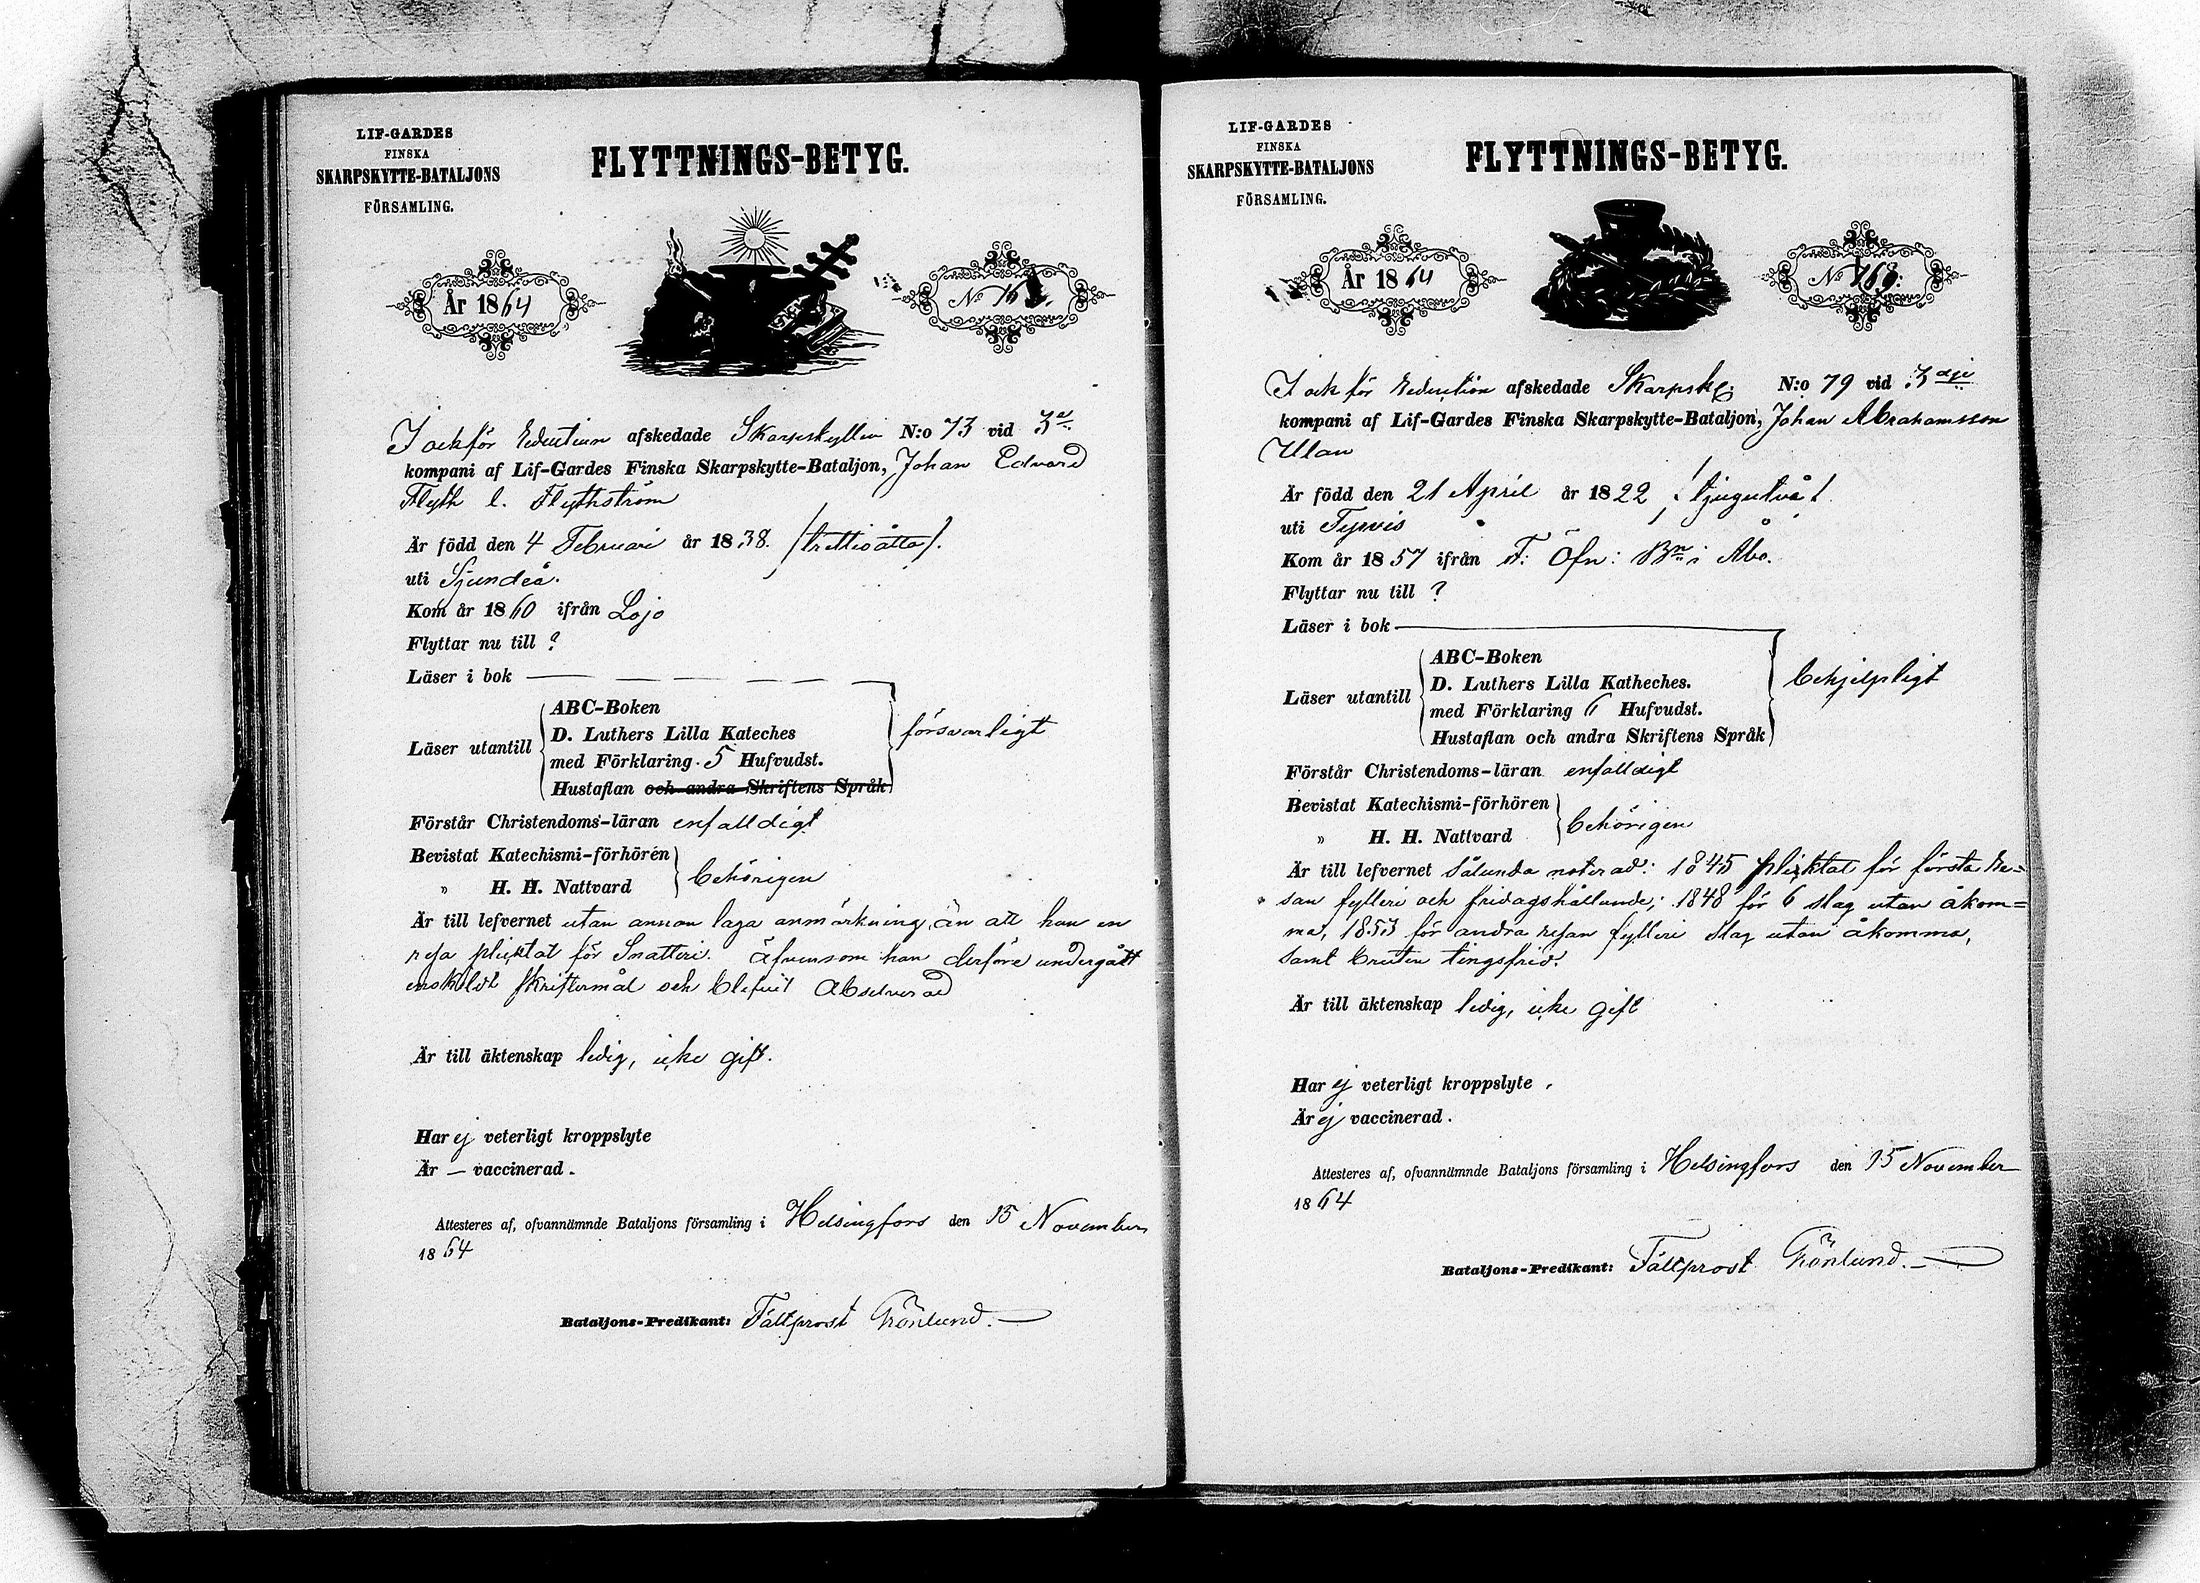 LIF-GARDES
FINSKA
SKARPSKYTTE-BATALJONS
FÖRSAMLING.
FLYTTNINGS-BETYG.
År 1864
No 16
I och för reduction afskedade Skarpskytten N:o 73 vid 3e
kompani af Lif-Gardes Finska Skarpskytte-Bataljon, Johan Edvard
Flyth l. Flythström
Är född den 4 Februari år 1838. /trettioåtta/.
uti Sjundeå.
Kom år 1860 ifrån Lojo
Flyttar nu till ?
Läser i bok
Läser utantill
ABC-Boken
D. Luthers Lilla Kateches
med Förklaring 5 Hufvudst.
Hustaflan och andra Skriftens Språk
försvarligt
Förstår Christendoms-läran enfalldigt
Bevistat Katechismi-förhören
" H. H. Nattvard
behörigen
Är till lefvernet utan annan laga anmärkning, än att han en
resa pligtat för Snatteri. äfvensom han derföre undergått
enskildt skriftermål och blifvit absolverad
Är till äktenskap ledig, icke gift.
Har ej veterligt kroppslyte
Är — vaccinerad.
Attesteres af, ofvannämnde Bataljons församling i Helsingfors den 15 November
1864
Bataljons-Predikant: Fältprost Grönlund.
LIF-GARDES
FINSKA
SKARPSKYTTE-BATALJONS
FÖRSAMLING.
FLYTTNINGS-BETYG.
År 1864
No 168.
I och för reduction afskedade Skarpsk: N:o 79 vid 3dje
kompani af Lif-Gardes Finska Skarpskytte-Bataljon, Johan Abrahamsson
Ulan
Är född den 21 April år 1822 /tjugutvå/
uti Tyrvis
Kom år 1857 ifrån F: Öfn: Bn i Åbo.
Flyttar nu till ?
Läser i bok
Läser utantill
ABC-Boken
D. Luthers Lilla Katheches.
med Förklaring 6 Hufvudst.
Hustaflan och andra Skriftens Språk
behjelpligt
Förstår Christendoms-läran enfalldigt
Bevistat Katechismi-förhören
" H. H. Nattvard
behörigen
Är till lefvernet sålunda noterad: 1845 pligtat för första re=
san fylleri och fridagshållande; 1848 för 6 slag utan åkom=
ma, 1853 för andra resan fylleri slag utan åkomma,
samt bruten tingsfrid.
Är till äktenskap ledig, icke gift
Har ej veterligt kroppslyte.
Är ej vaccinerad.
Attesteres af, ofvannämnde Bataljons församling i Helsingfors den 15 November
1864
Bataljons-Predikant: Fältprost Grönlund.